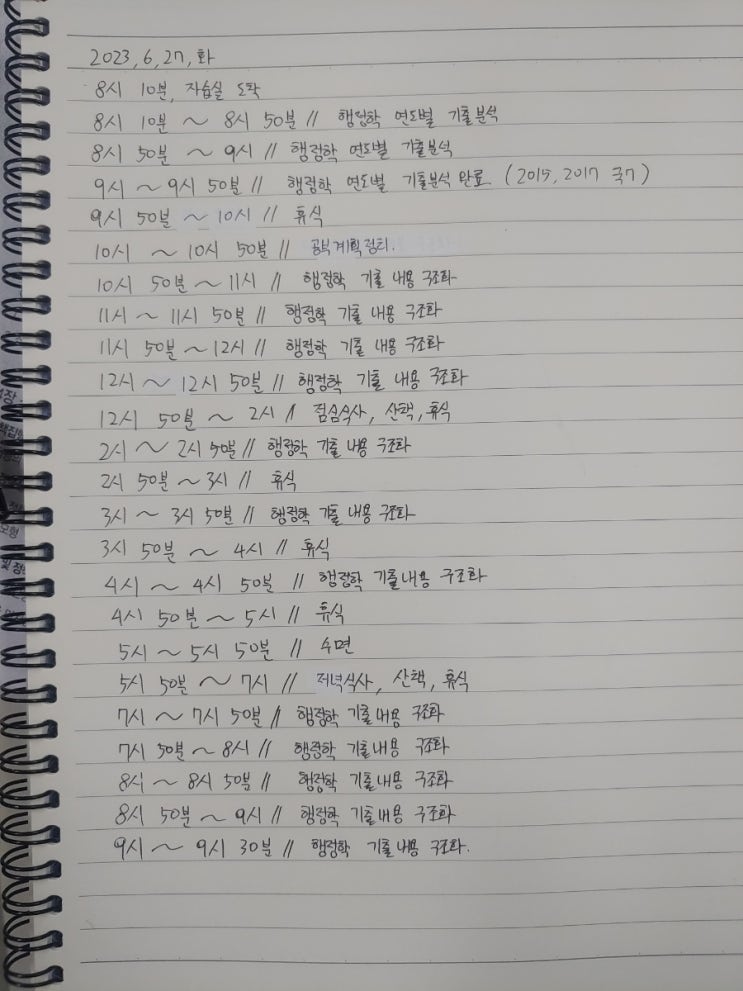 2023, 6, 27, 화
8시 10분, 자습실 도착
8시 10분 ~ 8시 50분 // 행정학 연도별 기출분석
8시 50분 ~ 9시 // 행정학 연도별 기출분석
9시 ~ 9시 50분 // 행정학 연도별 기출분석 완료 (2015, 2017 국7)
9시 50분 ~ 10시 // 휴식
10시 ~ 10시 50분 // 공부계획정리.
10시 50분 ~ 11시 // 행정학 기출 내용 구조화
11시 ~ 11시 50분 // 행정학 기출 내용 구조화
11시 50분 ~ 12시 // 행정학 기출 내용 구조화
12시 ~ 12시 50분 // 행정학 기출 내용 구조화
12시 50분 ~ 2시 // 점심식사, 산책, 휴식
2시 ~ 2시 50분 // 행정학 기출 내용 구조화
2시 50분 ~ 3시 // 휴식
3시 ~ 3시 50분 // 행정학 기출 내용 구조화
3시 50분 ~ 4시 // 휴식
4시 ~ 4시 50분 // 행정학 기출내용 구조화
4시 50분 ~ 5시 // 휴식
5시 ~ 5시 50분 // 수면
5시 50분 ~ 7시 // 저녁식사, 산책, 휴식
7시 ~ 7시 50분 // 행정학 기출내용 구조화
7시 50분 ~ 8시 // 행정학 기출내용 구조화
8시 ~ 8시 50분 // 행정학 기출내용 구조화
8시 50분 ~ 9시 // 행정학 기출내용 구조화
9시 ~ 9시 30분 // 행정학 기출내용 구조화.